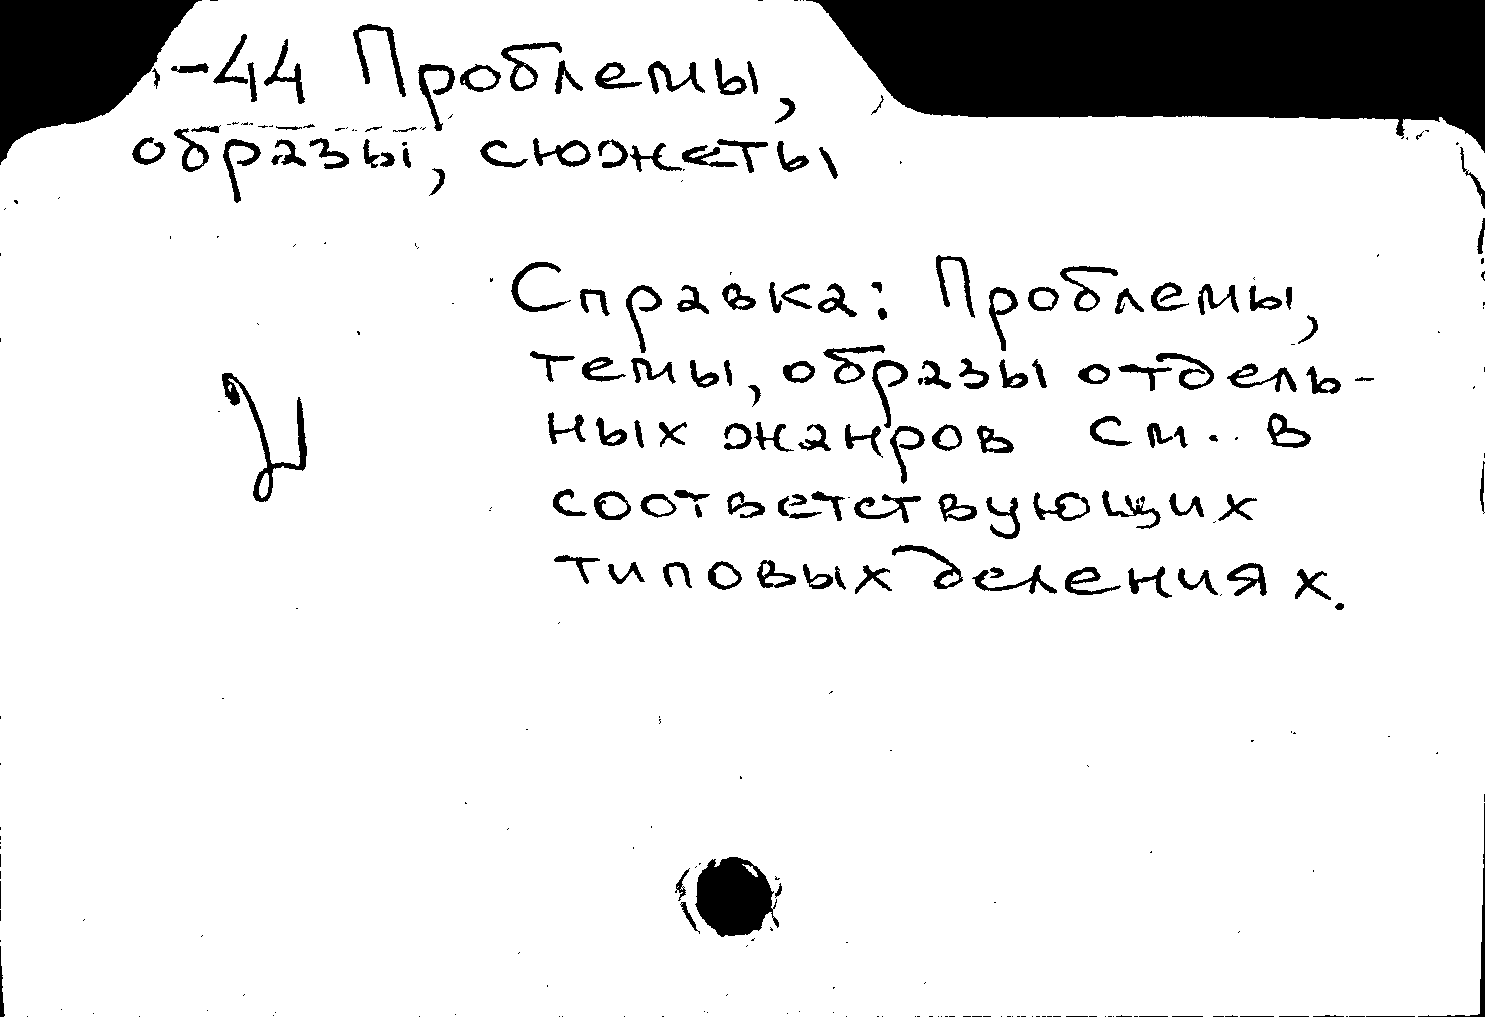 -44 Проблемы,
образы, сюжеты
Справка: Проблемы,
темы, образы отдель-
ных жанров см. в
соответствующих
типовых делениях.